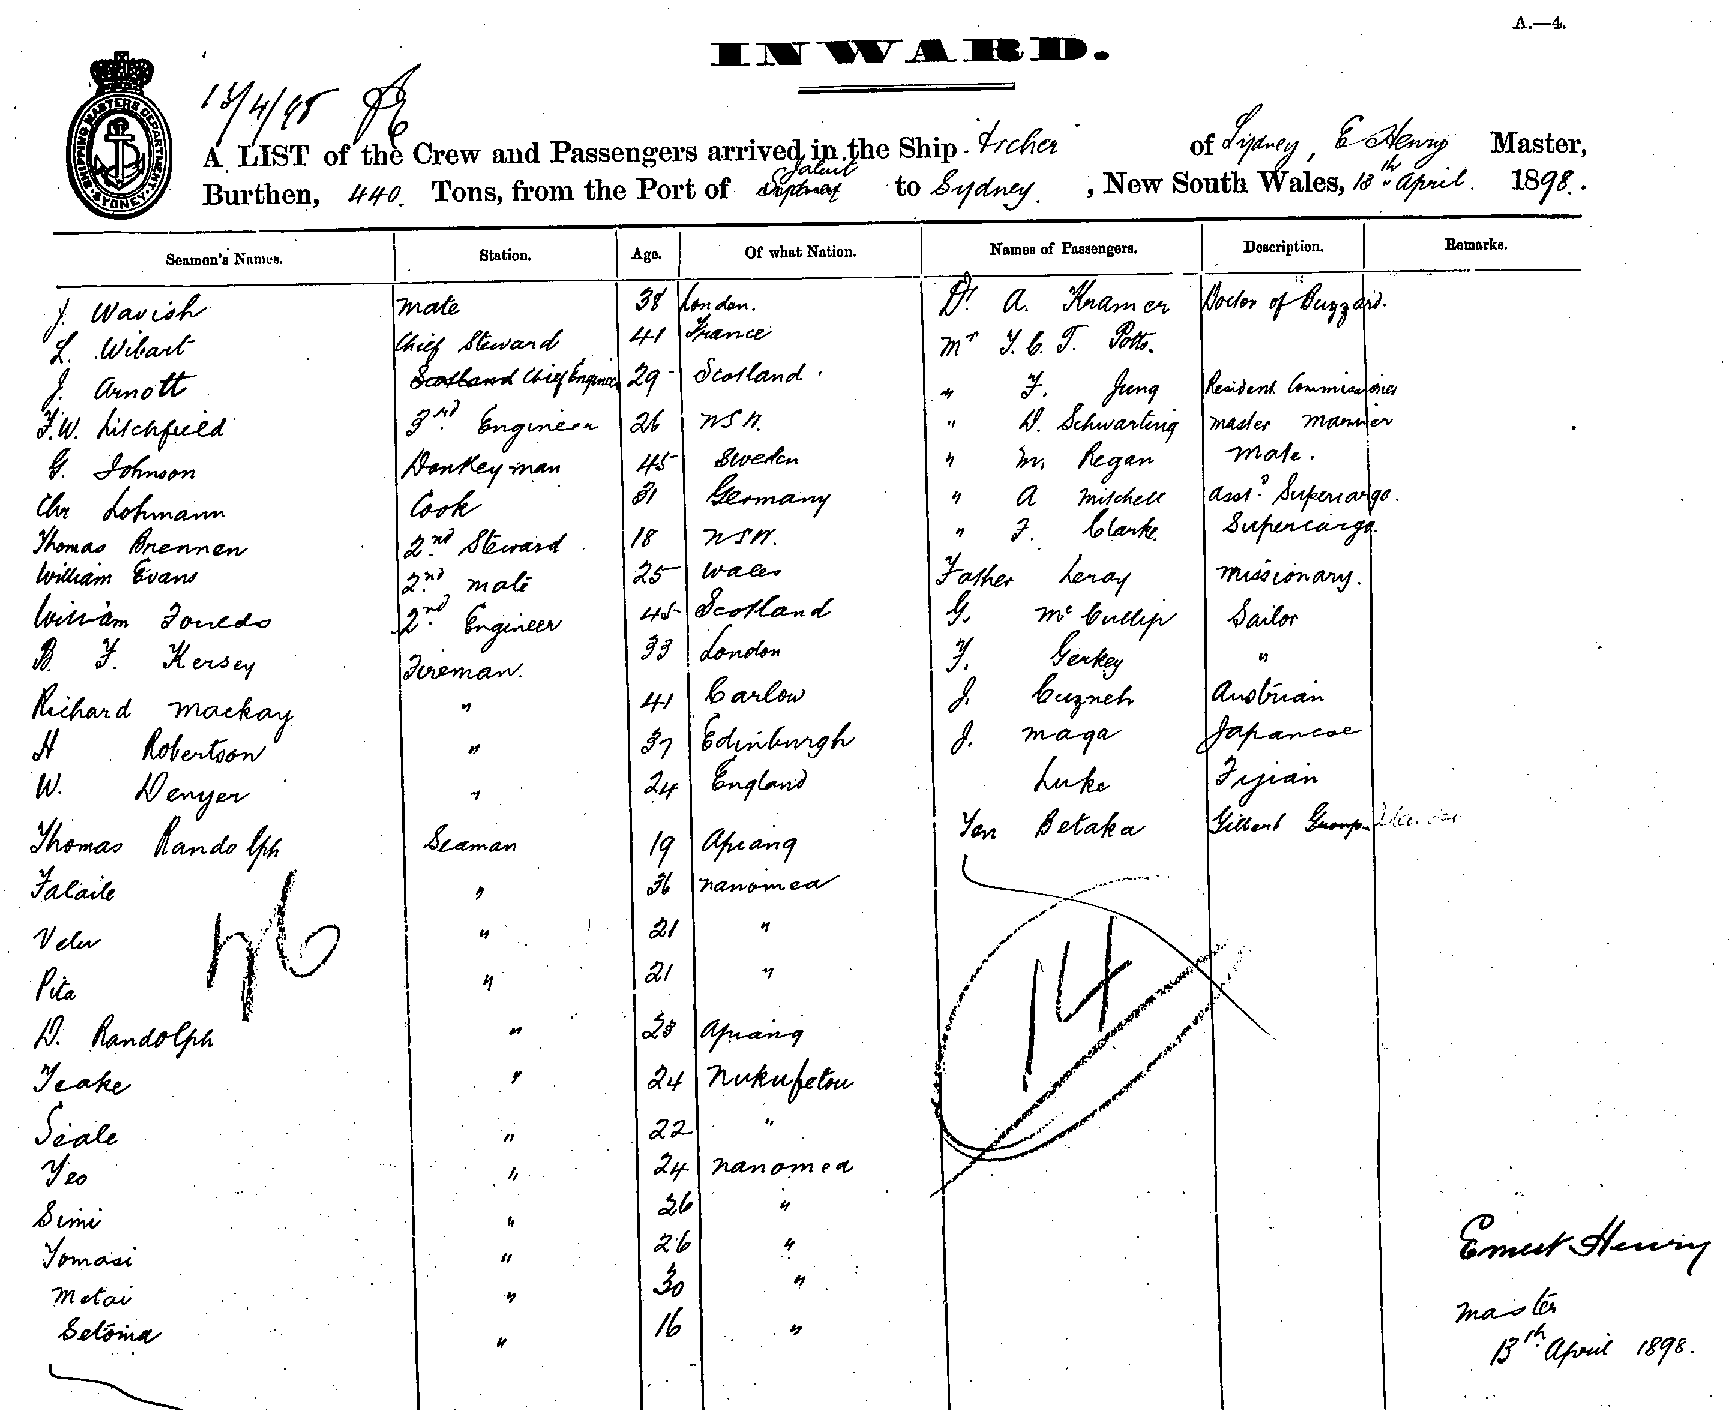 A.—4.
INWARD.
SHIPPING MASTERS DEPARTMENT SYDNEY
13/4/98
A LIST of the Crew and Passengers arrived in the Ship Archer of Sydney, E Henry Master,
Burthen, 440 Tons, from the Port of Jaluit to Sydney, New South Wales, 13th April 1898.
Seamen's Names. Station. Age. Of what Nation. Names of Passengers. Description. Remarks.
J. Wavish Mate 38 London. Dr A. Kramer Doctor of Buzzard.
L. Wibart Chief Steward 41 France Mr T. C. T. Potts.
J. Arnott Scotland Chief Engineer 29 Scotland. " F. Jung Resident Commissioner
F.W. Litchfield 3rd Engineer 26 NSW. " D. Schwarting Master Mariner
G. Johnson Donkey-man 45 Sweden " M. Regan Mate.
Chr Lohmann Cook 31 Germany " A Mitchell Asst Supercargo.
Thomas Brennen 2nd Steward 18 NSW. " F. Clarke. Supercargo.
William Evans 2nd Mate 25 Wales Father Leray Missionary.
William Foulds 2nd Engineer 45 Scotland G. McCullip Sailor
B. F. Kersey Fireman. 33 London F. Gerkey "
Richard Mackay " 41 Carlow J. Cuzneh Austrian
H Robertson " 37 Edinburgh J. Maga Japanese
W. Denyer " 24 England Luke Fijian
Thomas Randolph Seaman 19 Apiang Ten Betaka Gilbert Group
Falaile " 36 Nanomea
Velu " 21 "
Pita " 21 "
D. Randolph " 23 Apiang
Teake " 24 Nukufetou
Seale " 22 "
Yeo " 24 Nanomea
Simi " 26 "
Tomasi " 26 "
Metai " 30 "
Setoma " 16 "
26
14
Ernest Henry
Master
13th April 1898.